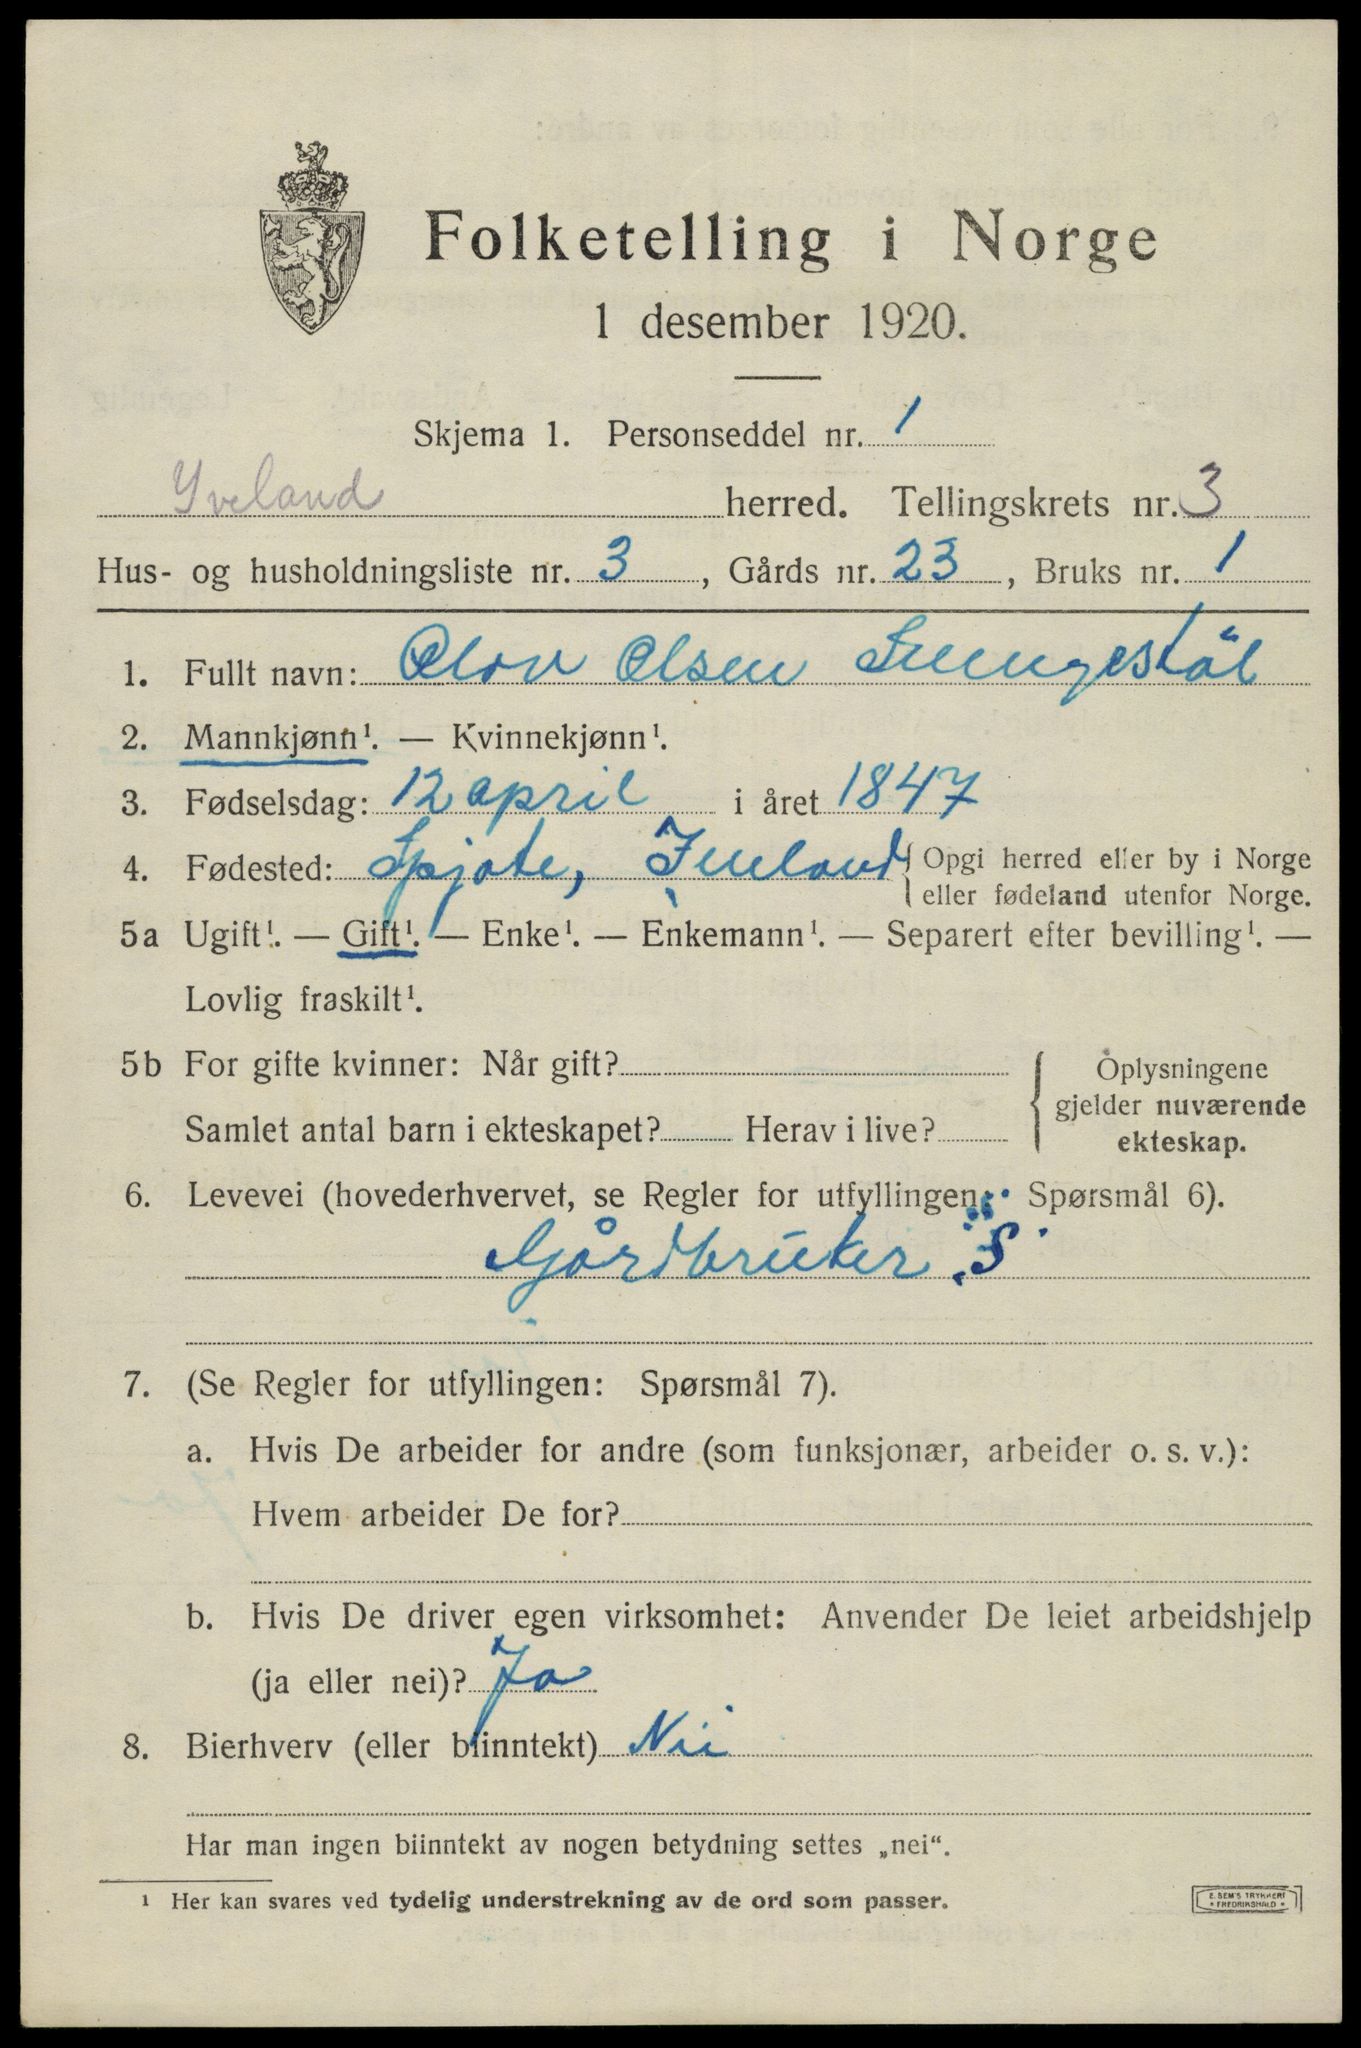 Folketelling i Norge
1 desember 1920.
Skjema 1. Personseddel nr. 1
Yveland herred. Tellingskrets nr. 3
Hus- og husholdningsliste nr. 3, Gårds nr. 23, Bruks nr. 1
1. Fullt navn: Olov Olsen
2. Mannkjønn¹. — Kvinnekjønn¹.
3. Fødselsdag: 12 april i året 1847
4. Fødested: Spjote, { Opgi herred eller by i Norge
eller fødeland utenfor Norge.
5a Ugift¹. — Gift¹. — Enke¹. — Enkemann¹. — Separert efter bevilling¹. —
Lovlig fraskilt¹.
5b For gifte kvinner: Når gift? { Oplysningene
gjelder nuværende
Samlet antal barn i ekteskapet? Herav i live?
ekteskap.
6. Levevei (hovederhvervet, se Regler for utfyllingen: Spørsmål 6).
Gårdbruker "S"
7. (Se Regler for utfyllingen: Spørsmål 7).
a. Hvis De arbeider for andre (som funksjonær, arbeider o. s. v.):
Hvem arbeider De for?
b. Hvis De driver egen virksomhet: Anvender De leiet arbeidshjelp
(ja eller nei)? Ja
8. Bierhverv (eller biinntekt) Nii
Har man ingen biinntekt av nogen betydning settes „nei“.
¹ Her kan svares ved tydelig understrekning av de ord som passer.
E. SEM'S TRYKKERI
* FREDRIKSHALD *